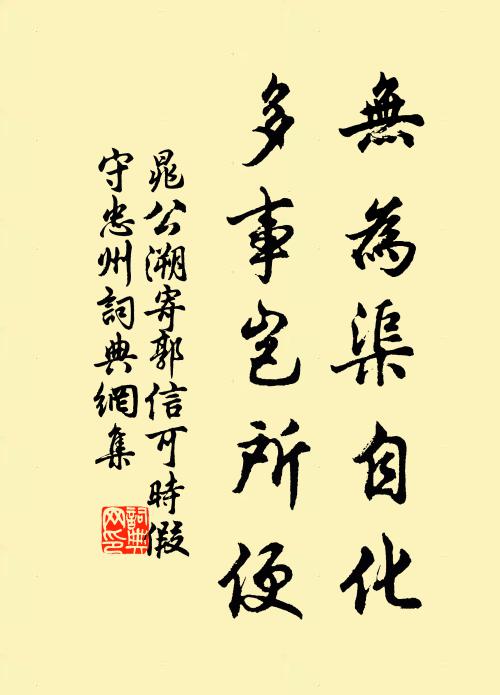 無為渠自化
多事豈所便
晁公溯寄郭信可時假
守忠州詞典網集
詞典
网印